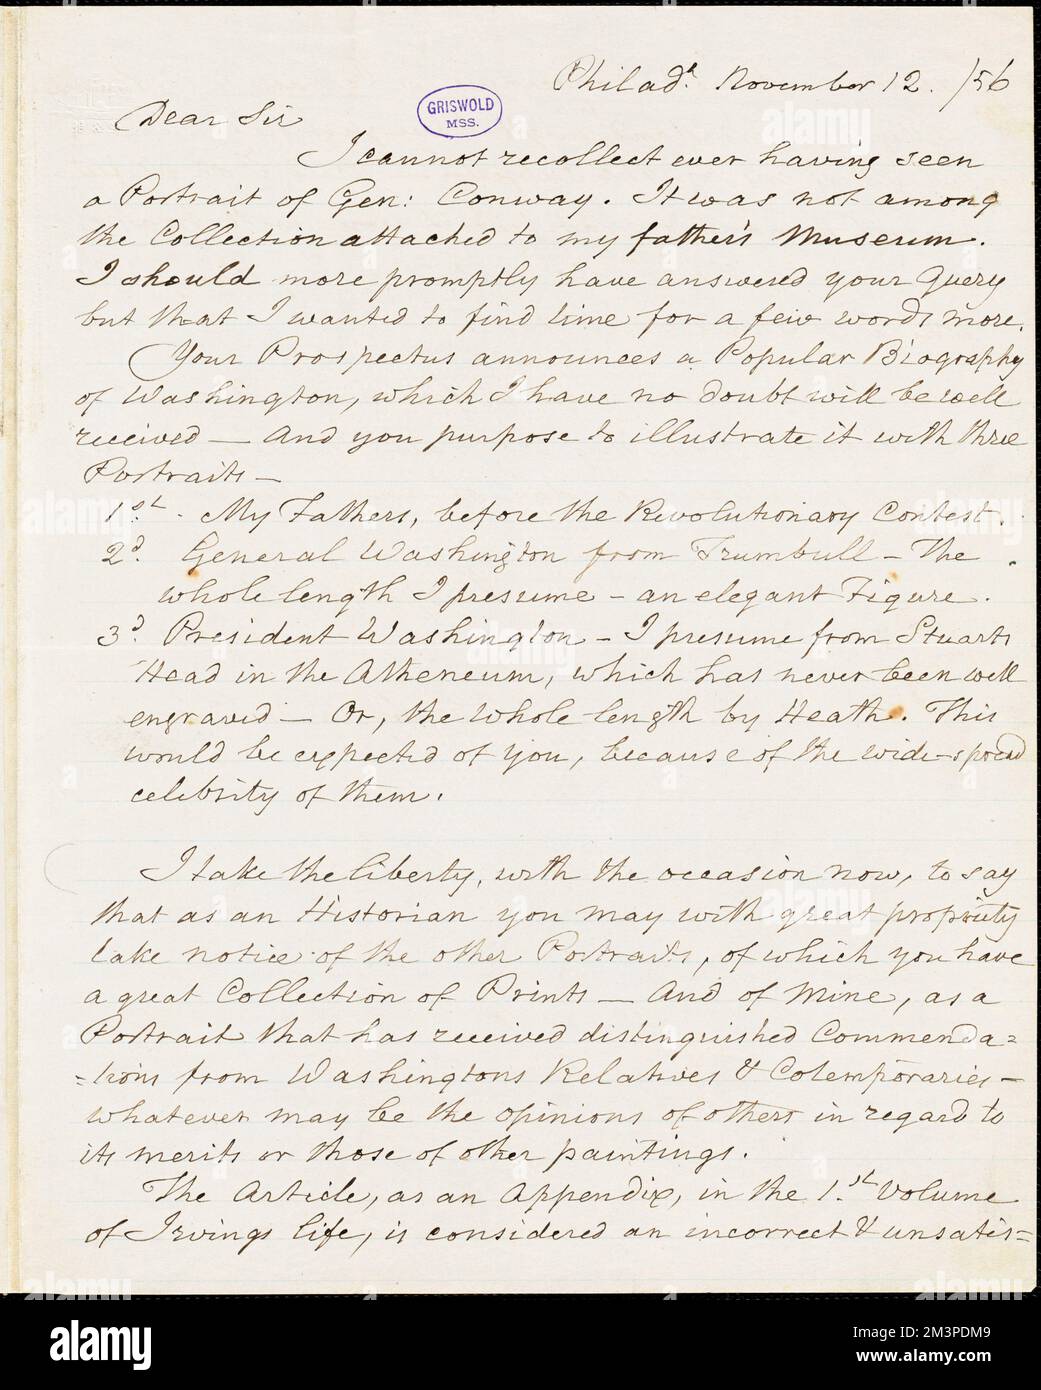 Philadª. November 12. /56
GRISWOLD
MSS.
Dear Sir
I cannot recollect ever having seen
a Portrait of Gen: Conway. It was not among
the Collection attached to my father's Museum.
I should more promptly have answered your Query
but that I wanted to find time for a few words more.
Your Prospectus announces a Popular Biography
of Washington, which I have no doubt will be well
received — And you purpose to illustrate it with three
Portraits —
1.st. My Fathers, before the Revolutionary Contest.
2.d General Washington from Trumbull — The
whole length I presume — an elegant Figure.
3.d President Washington — I presume from Stuarts
Head in the Atheneum, which has never been well
engraved — Or, the whole length by Heath. This
would be expected of you, because of the wide-spread
celebrity of them.
I take the liberty, with the occasion now, to say
that as an Historian you may with great propriety
take notice of the other Portraits, of which you have
a great Collection of Prints — And of Mine, as a
Portrait that has received distinguished Commenda=
=tions from Washingtons Relatives & Cotemporaries —
whatever may be the opinions of others in regard to
its merits or those of other paintings.
The Article, as an Appendix, in the 1.st Volume
of Irvings life, is considered an incorrect & unsatis=
alamy
Image ID: 2M3PDM9
www.alamy.com